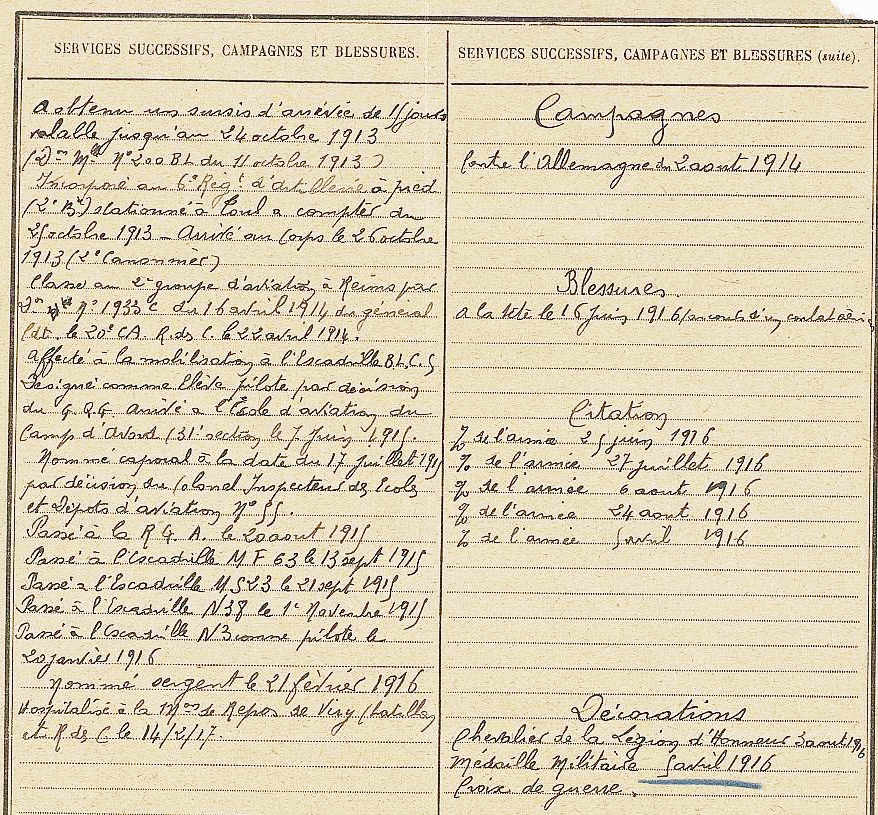 SERVICES SUCCESSIFS, CAMPAGNES ET BLESSURES.
a obtenu un sursis d'arrivée de 15 jours
valable jusqu'au 24 octobre 1913
(Don Mlle N° 200 BL du 11 octobre 1913)
Incorporé au 6e Régt d'artillerie à pied
(2e Bie) stationné à Toul a compter du
25 octobre 1913 - Arrivé au Corps le 26 octobre
1913 (2e Canonnier)
Classé au 2e groupe d'aviation à Reims par
Don N° 1933 c du 16 avril 1914 du général
Cdt le 20e CA. R. ds C. le 22 avril 1914.
Affecté à la mobilisation à l'Escadrille BL.C.5
Désigné comme Elève pilote par décision
du G.Q.G arrivé à l'École d'aviation du
Camp d'Avord (31e section le 7 Juin 1915.
Nommé caporal à la date du 17 juillet 1915
par décision du Colonel Inspecteur des Ecoles
et Dépôts d'aviation N° 55.
Passé à la R.G.A. le 20 aout 1915
Passé à l'Escadrille M F 63 le 13 sept 1915
Passé a l'Escadrille M S 23 le 21 sept 1915
Passé à l'Escadrille N38 le 1er Novembre 1915
Passé à l'Escadrille N3 comme pilote le
20 janvier 1916
Nommé sergent le 21 février 1916
Hospitalisé à la Mon de Repos de Viry Chatillon
et R ds C le 14/2/17
SERVICES SUCCESSIFS, CAMPAGNES ET BLESSURES (suite).
Campagnes
Contre l'Allemagne du 2 aout 1914
Blessures
a la tête le 16 Juin 1916 (au cours d'un combat aérien
Citation
% de l'armée 25 juin 1916
% de l'armée 27 juillet 1916
% de l'armée 6 aout 1916
% de l'armée 24 aout 1916
% de l'armée 5 avril 1916
Décorations
Chevalier de la Légion d'Honneur 3 aout 1916
Médaille Militaire 5 avril 1916
Croix de guerre.